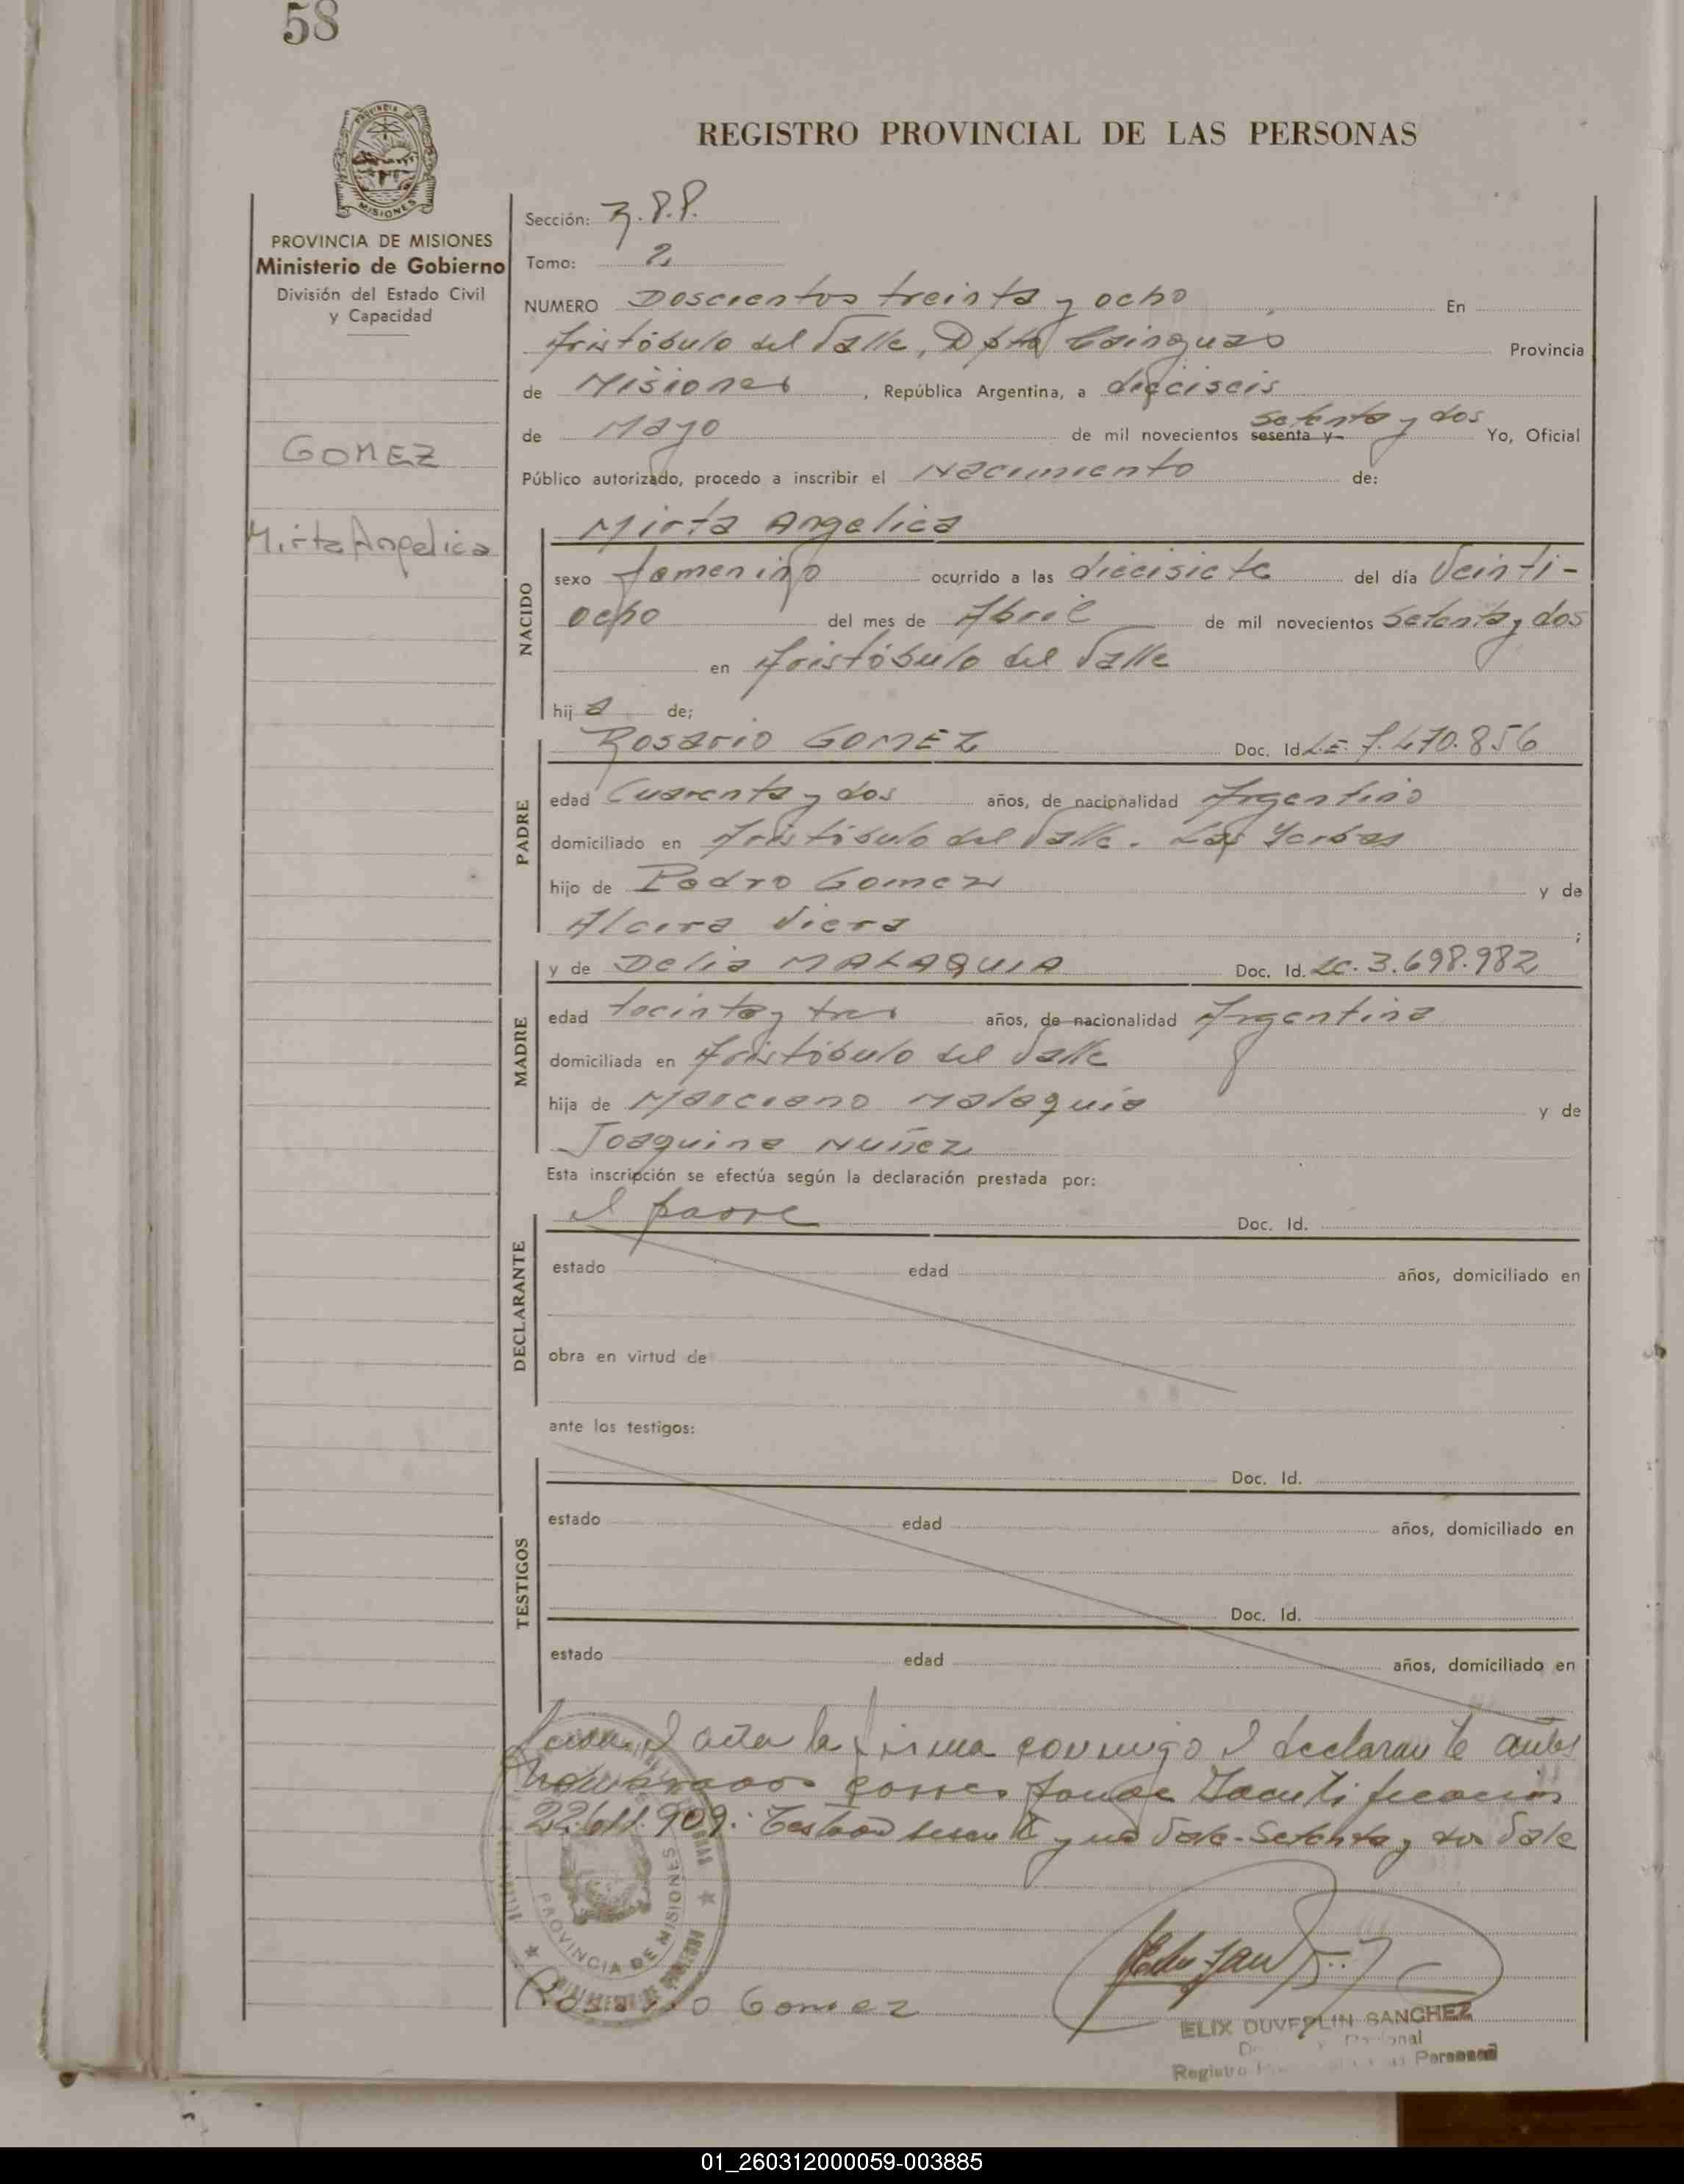 58
REGISTRO PROVINCIAL DE LAS PERSONAS
PROVINCIA DE
MISIONES
PROVINCIA DE MISIONES
Ministerio de Gobierno
División del Estado Civil
y Capacidad
GOMEZ
Mirta Angelica
Sección:
Tomo: 2
NUMERO Doscientos treinta y ocho En
Aristóbulo del Valle, Dpto Cainguás Provincia
de Misiones, República Argentina, a dieciseis
de Mayo de mil novecientos sesenta y setenta y dos Yo, Oficial
Público autorizado, procedo a inscribir el Nacimiento de:
Mirta Angelica
NACIDO
sexo femenino ocurrido a las diecisiete del día Veinti-
ocho del mes de Abril de mil novecientos Setenta y dos
en Aristóbulo del Valle
hija de;
PADRE
Rosario GOMEZ Doc. Id. L.E. 7.470.856
edad Cuarenta y dos años, de nacionalidad Argentino
domiciliado en Aristóbulo del Valle. Las Yerbas
hijo de Pedro Gomez y de
Alcira Viera ;
MADRE
y de Delia MALAQUIA Doc. Id. LC. 3.698.982
edad treinta y tres años, de nacionalidad Argentina
domiciliada en Aristóbulo del Valle
hija de Marciano Malaquia y de
Joaquina Nuñez
Esta inscripción se efectúa según la declaración prestada por:
DECLARANTE
el padre Doc. Id.
estado edad años, domiciliado en
obra en virtud de
ante los testigos:
TESTIGOS
Doc. Id.
estado edad años, domiciliado en
Doc. Id.
estado edad años, domiciliado en
el acta la firma conmigo el declarante antes
corresponde Identificación
22.611.909: Testado sesenta y no Vale-Setenta y dos Vale
PROVINCIA DE MISIONES
Rosario Gomez
ELIX DUVERLIN SANCHEZ
Registro Personas
01_260312000059-003885